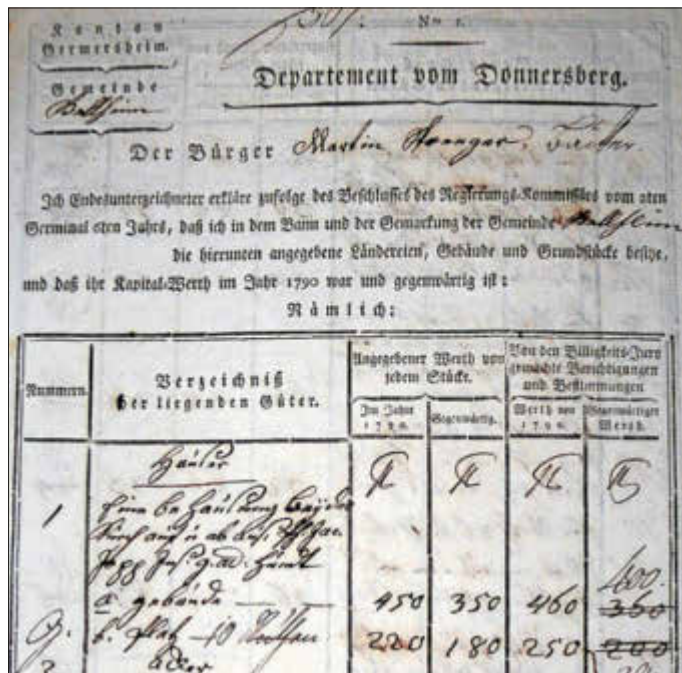 Kanton
Germersheim.
Gemeinde
Bellheim
No 1.
Departement vom Donnersberg.
Der Bürger Martin
Ich Endesunterzeichneter erkläre zufolge des Beschlusses des Regierungs-Kommissärs vom 2ten
Germinal 6ten Jahrs, daß ich in dem Bann und der Gemarkung der Gemeinde Bellheim
die hierunten angegebene Ländereien, Gebäude und Grundstücke besitze,
und daß ihr Kapital-Werth im Jahr 1790 war und gegenwärtig ist:
Nämlich:
Nummern.
Verzeichniß
der liegenden Güter.
Angegebener Werth von
jedem Stücke.
Im Jahre
1790.
Gegenwärtig.
Von den Billigkeits-Jury
gemachte Berichtigungen
und Bestimmungen
Werth von
1790.
Gegenwärtiger
Werth.
Häuser
1 Eine behausung
a. gebäude 450 350 460 400. 360
b. Platz 10 220 180 250 200
2 Acker